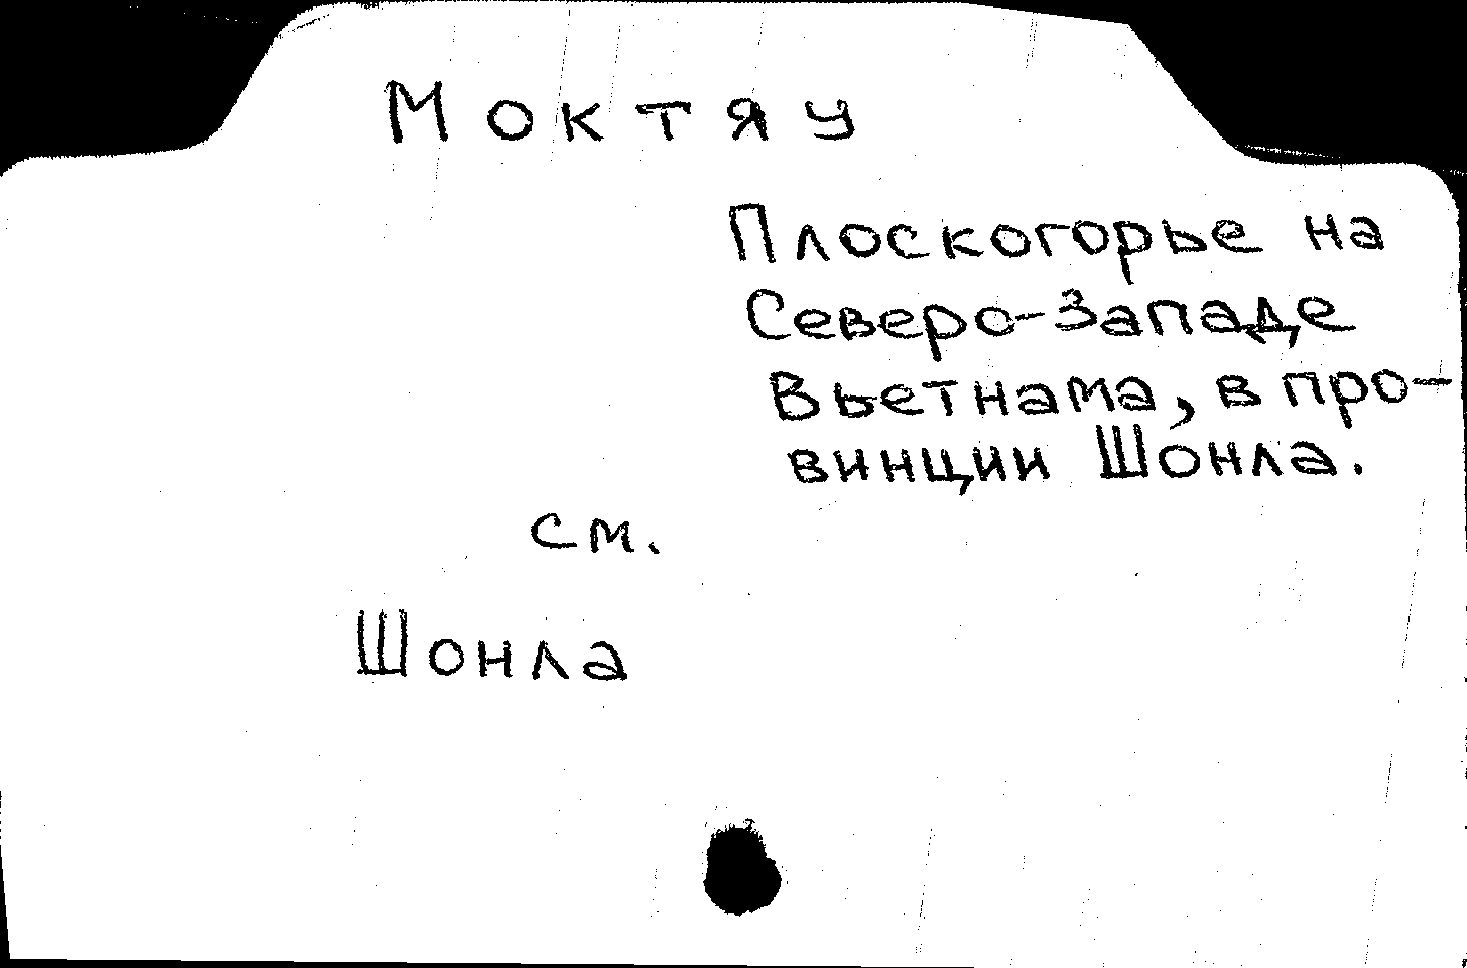 Моктяу
Плоскогорье на
Северо-Западе
Вьетнама, в про-
винции Шонла.
см.
Шонла